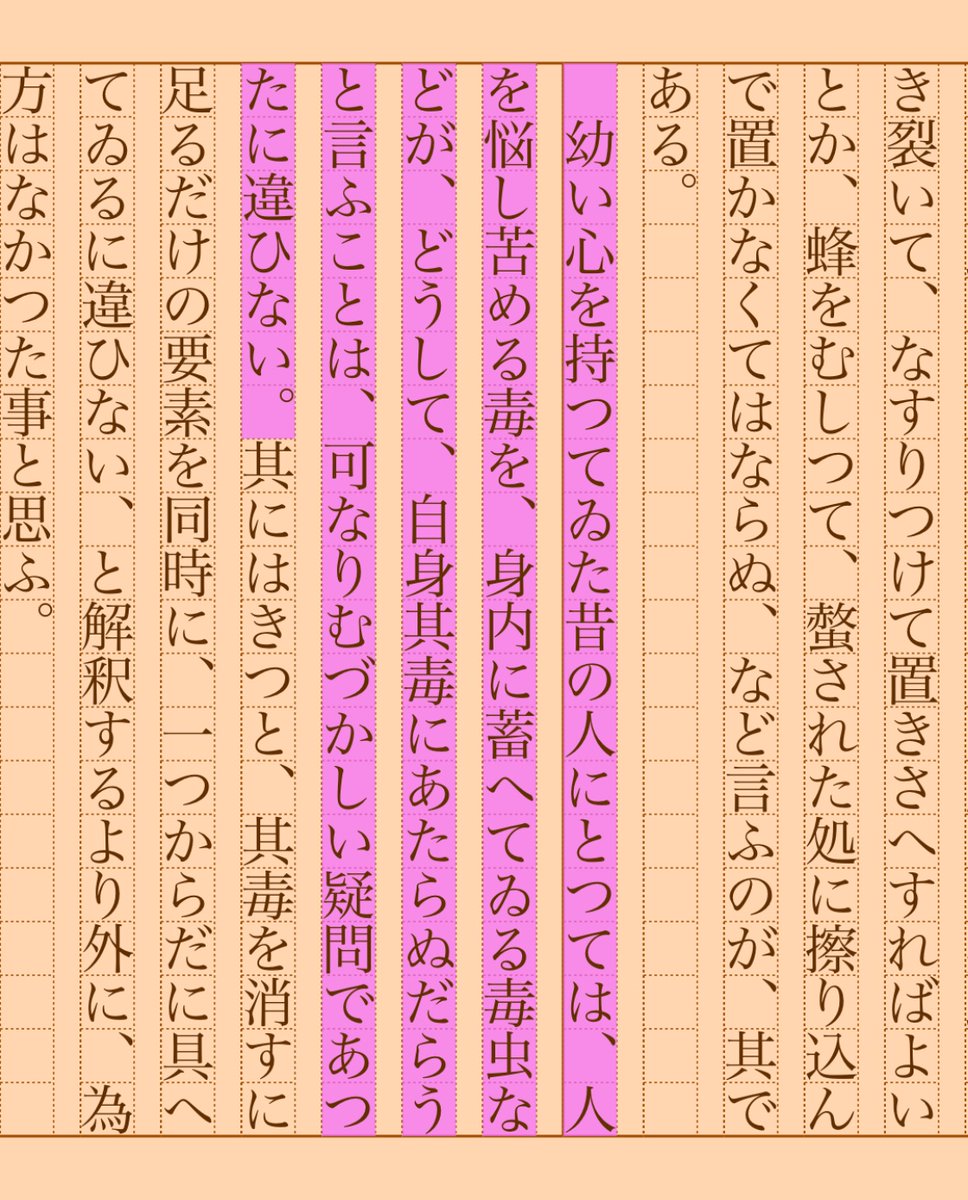 き裂いて、なすりつけて置きさへすればよい
とか、蜂をむしつて、螫された処に擦り込ん
で置かなくてはならぬ、など言ふのが、其で
ある。
　幼い心を持つてゐた昔の人にとつては、人
を悩し苦める毒を、身内に蓄へてゐる毒虫な
どが、どうして、自身其毒にあたらぬだらう
と言ふことは、可なりむづかしい疑問であつ
たに違ひない。其にはきつと、其毒を消すに
足るだけの要素を同時に、一つからだに具へ
てゐるに違ひない、と解釈するより外に、為
方はなかつた事と思ふ。